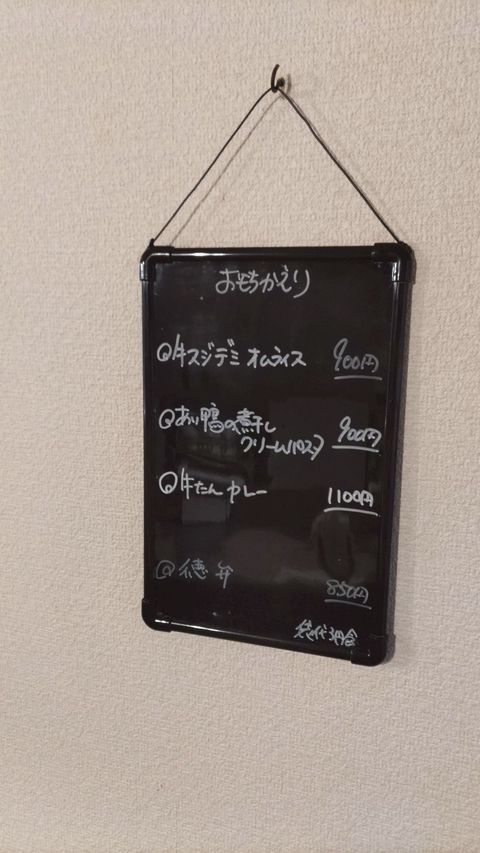 おもちかえり
◎牛スジデミオムライス 900円
◎あい鴨の煮干し
クリームパスタ 900円
◎牛たんカレー 1100円
◎徳弁 850円
袋代3円含